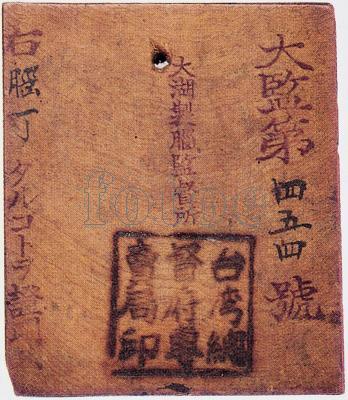 大監第四五四號
大湖製腦監督所
台湾總
督府專
賣局印
右腦丁タルコトヲ證